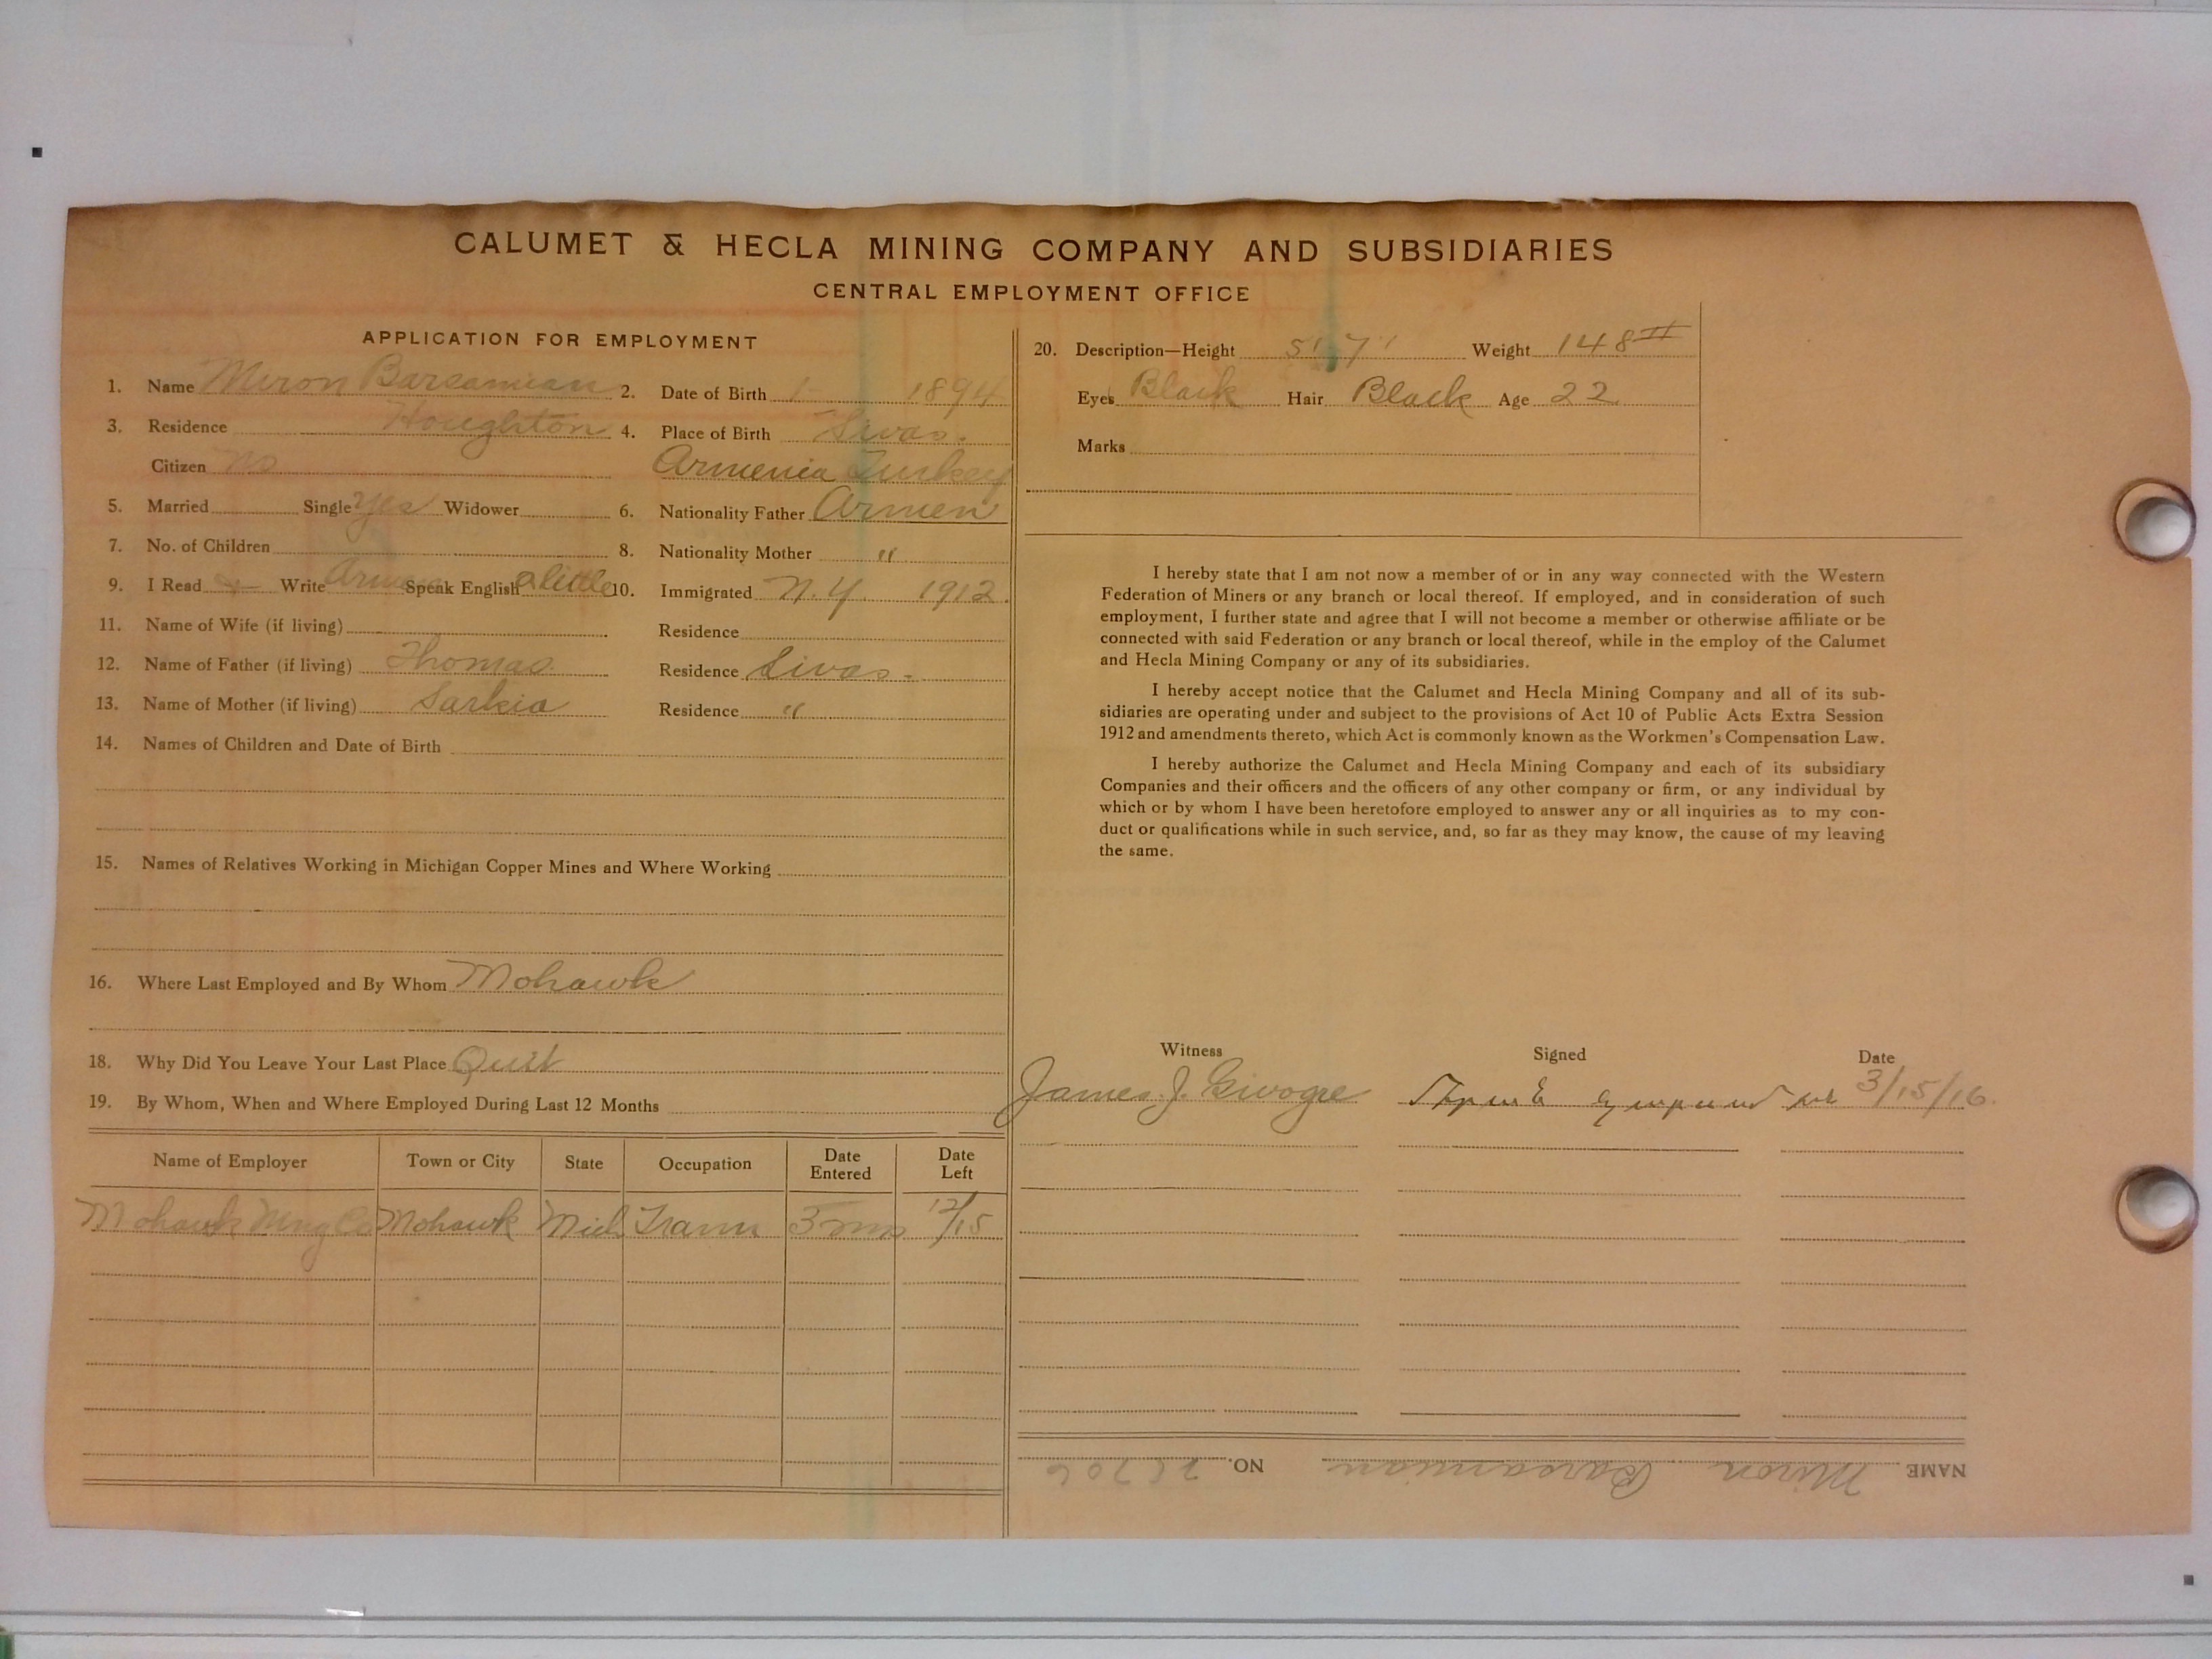 CALUMET & HECLA MINING COMPANY AND SUBSIDIARIES
CENTRAL EMPLOYMENT OFFICE
APPLICATION FOR EMPLOYMENT
1. Name Miron Barsamian 2. Date of Birth 1 1894
3. Residence Houghton 4. Place of Birth Sivas.
Citizen no Armenia Turkey
5. Married Single yes Widower 6. Nationality Father Armen
7. No. of Children 8. Nationality Mother "
9. I Read Write Armen Speak English a little 10. Immigrated N.Y. 1912.
11. Name of Wife (if living) Residence
12. Name of Father (if living) Thomas Residence Sivas-
13. Name of Mother (if living) Sarkia Residence "
14. Names of Children and Date of Birth
15. Names of Relatives Working in Michigan Copper Mines and Where Working
16. Where Last Employed and By Whom Mohawk
18. Why Did You Leave Your Last Place Quit
19. By Whom, When and Where Employed During Last 12 Months
Name of Employer Town or City State Occupation Date Entered Date Left
Mohawk Mng Co Mohawk Mich Tram 3 mos 12/15
20. Description—Height 5' 7' Weight 148#
Eyes Black Hair Black Age 22
Marks
I hereby state that I am not now a member of or in any way connected with the Western
Federation of Miners or any branch or local thereof. If employed, and in consideration of such
employment, I further state and agree that I will not become a member or otherwise affiliate or be
connected with said Federation or any branch or local thereof, while in the employ of the Calumet
and Hecla Mining Company or any of its subsidiaries.
I hereby accept notice that the Calumet and Hecla Mining Company and all of its sub-
sidiaries are operating under and subject to the provisions of Act 10 of Public Acts Extra Session
1912 and amendments thereto, which Act is commonly known as the Workmen's Compensation Law.
I hereby authorize the Calumet and Hecla Mining Company and each of its subsidiary
Companies and their officers and the officers of any other company or firm, or any individual by
which or by whom I have been heretofore employed to answer any or all inquiries as to my con-
duct or qualifications while in such service, and, so far as they may know, the cause of my leaving
the same.
Witness Signed Date
James J. Givogre 3/15/16.
NAME Miron Barsamian NO. 26706